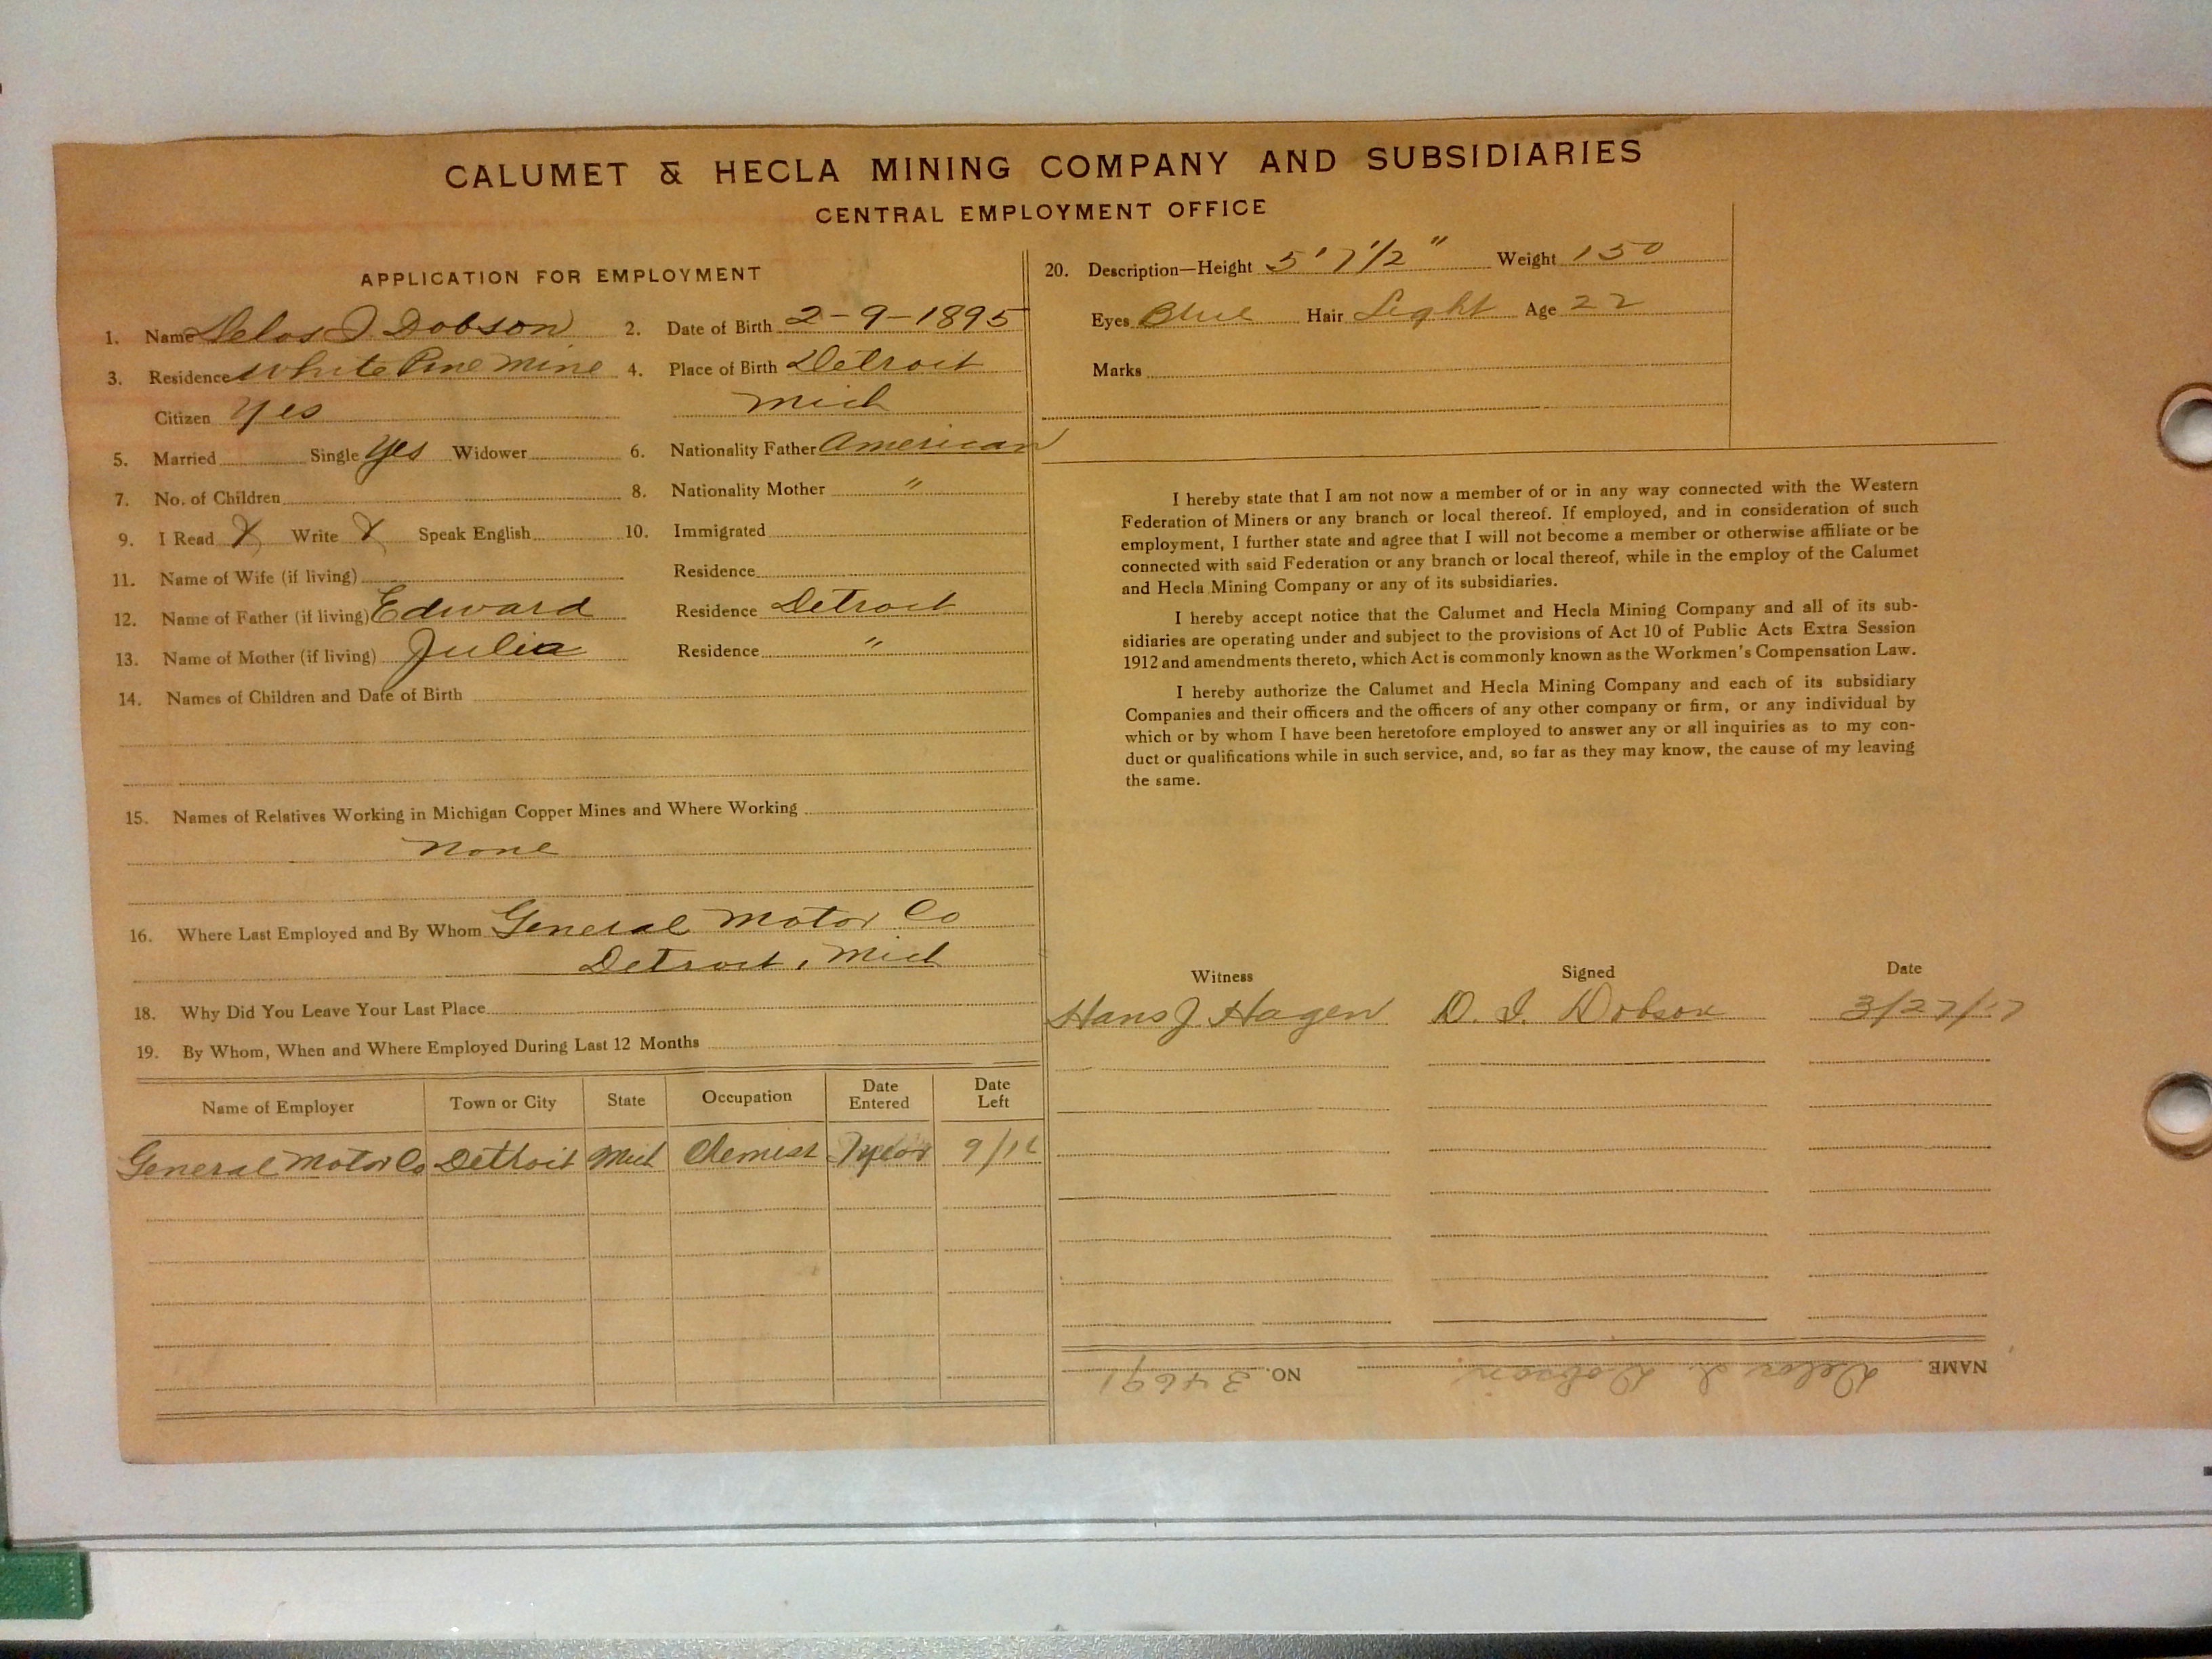 CALUMET & HECLA MINING COMPANY AND SUBSIDIARIES
CENTRAL EMPLOYMENT OFFICE
APPLICATION FOR EMPLOYMENT
1. Name Delos I. Dobson 2. Date of Birth 2-9-1895
3. Residence White Pine Mine 4. Place of Birth Detroit
Citizen Yes Mich
5. Married Single Yes Widower 6. Nationality Father American
7. No. of Children 8. Nationality Mother "
9. I Read X Write X Speak English 10. Immigrated
11. Name of Wife (if living) Residence
12. Name of Father (if living) Edward Residence Detroit
13. Name of Mother (if living) Julia Residence "
14. Names of Children and Date of Birth
15. Names of Relatives Working in Michigan Copper Mines and Where Working
None
16. Where Last Employed and By Whom General Motor Co
Detroit, Mich
18. Why Did You Leave Your Last Place
19. By Whom, When and Where Employed During Last 12 Months
Name of Employer Town or City State Occupation Date Entered Date Left
General Motor Co Detroit Mich Chemist year
20. Description—Height 5' 7 1/2" Weight 150
Eyes Blue Hair Light Age 22
Marks
I hereby state that I am not now a member of or in any way connected with the Western
Federation of Miners or any branch or local thereof. If employed, and in consideration of such
employment, I further state and agree that I will not become a member or otherwise affiliate or be
connected with said Federation or any branch or local thereof, while in the employ of the Calumet
and Hecla Mining Company or any of its subsidiaries.
I hereby accept notice that the Calumet and Hecla Mining Company and all of its sub-
sidiaries are operating under and subject to the provisions of Act 10 of Public Acts Extra Session
1912 and amendments thereto, which Act is commonly known as the Workmen's Compensation Law.
I hereby authorize the Calumet and Hecla Mining Company and each of its subsidiary
Companies and their officers and the officers of any other company or firm, or any individual by
which or by whom I have been heretofore employed to answer any or all inquiries as to my con-
duct or qualifications while in such service, and, so far as they may know, the cause of my leaving
the same.
Witness Signed Date
Hans J. Hagen D. I. Dobson 3/27/17
NAME Delos I. Dobson NO. 34691